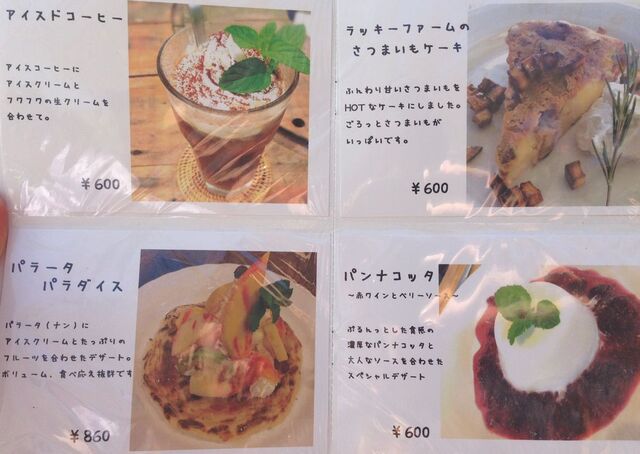 アイスドコーヒー
アイスコーヒーに
アイスクリームと
フワフワの生クリームを
合わせて。
¥600
ラッキーファームの
さつまいもケーキ
ふんわり甘いさつまいもを
HOTなケーキにしました。
ごろっとさつまいもが
いっぱいです。
¥600
パラータ
パラダイス
パラータ(ナン)に
アイスクリームとたっぷりの
フルーツを合わせたデザート。
ボリューム、食べ応え抜群です
¥860
パンナコッタ
〜赤ワインとベリーソース〜
ぷるんっとした食感の
濃厚なパンナコッタと
大人なソースを合わせた
スペシャルデザート
¥600